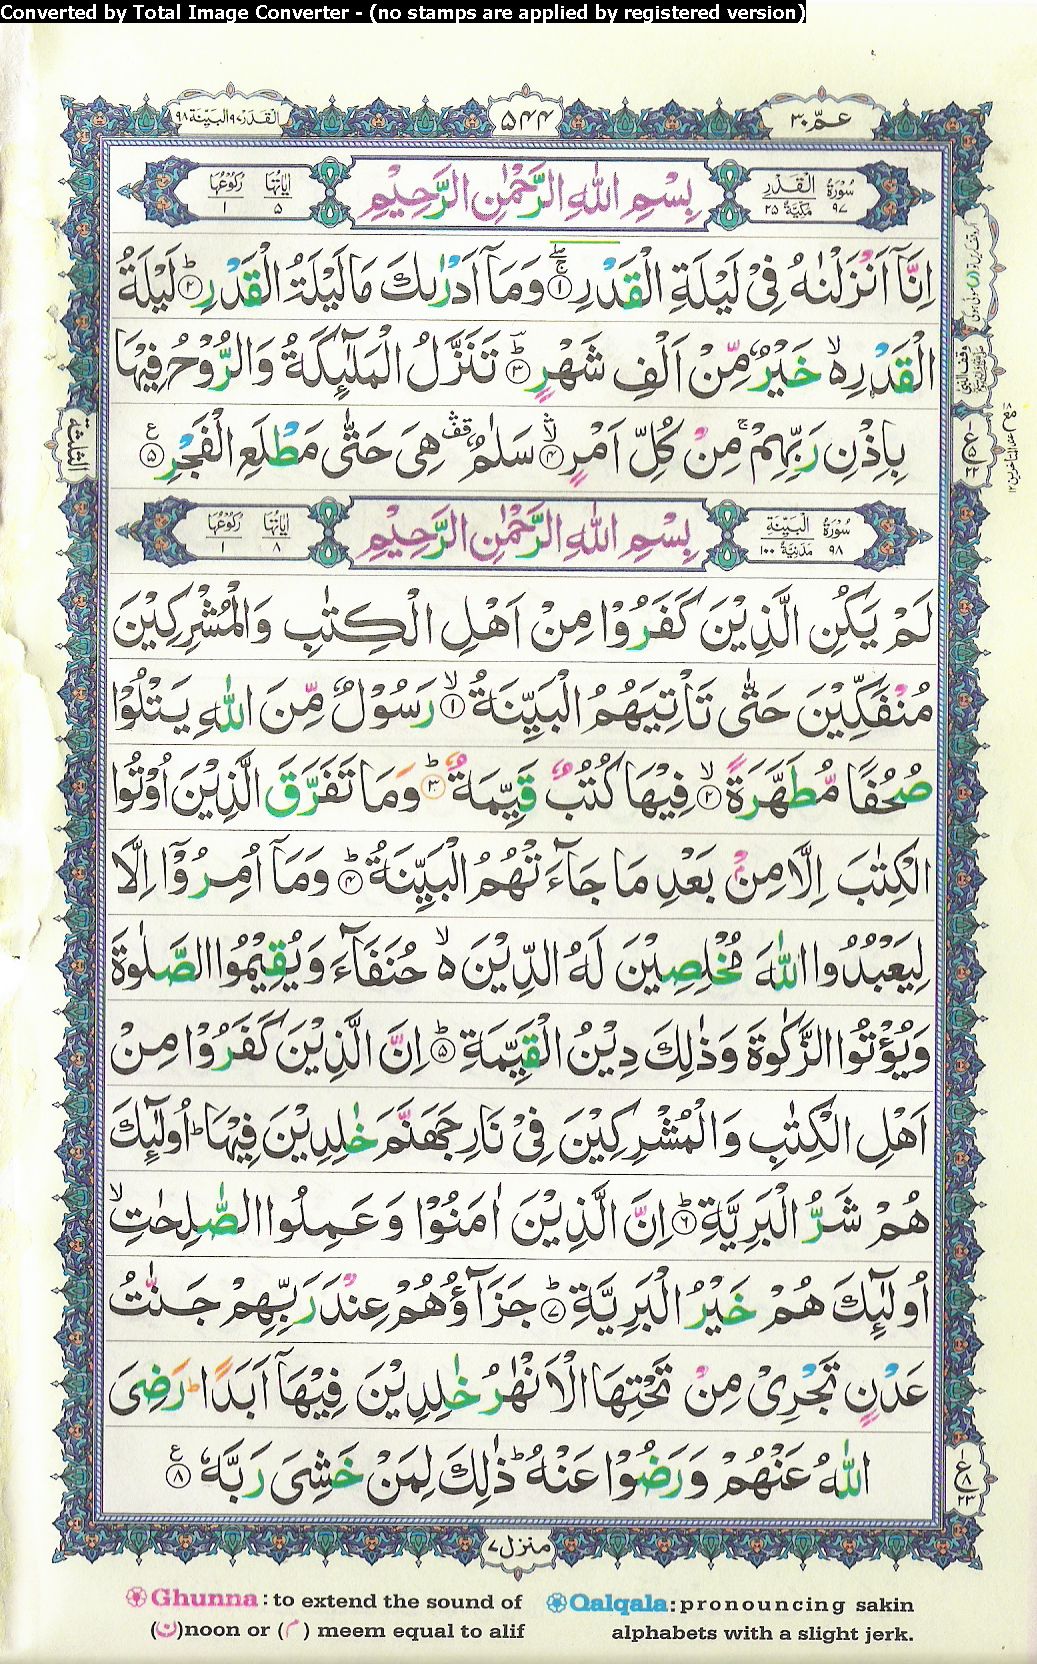 Converted by Total Image Converter - (no stamps are applied by registered version)
عمّ ۳۰
۵۴۴
القدر ۹۷ البينة ۹۸
سُوْرَةُ الْقَدْرِ ۹۷ مَكِّيَّةٌ ۲۵
بِسْمِ اللّٰهِ الرَّحْمٰنِ الرَّحِيْمِ
اٰيَاتُهَا ۵ رُكُوْعُهَا ۱
اِنَّاۤ اَنْزَلْنٰهُ فِيْ لَيْلَةِ الْقَدْرِ ۱ وَمَاۤ اَدْرٰىكَ مَا لَيْلَةُ الْقَدْرِ ۲ لَيْلَةُ
الْقَدْرِ خَيْرٌ مِّنْ اَلْفِ شَهْرٍ ۳ تَنَزَّلُ الْمَلٰٓئِكَةُ وَالرُّوْحُ فِيْهَا
بِاِذْنِ رَبِّهِمْ مِنْ كُلِّ اَمْرٍ ۴ سَلٰمٌ هِيَ حَتّٰى مَطْلَعِ الْفَجْرِ ۵
الثلثة
سُوْرَةُ الْبَيِّنَةِ ۹۸ مَدَنِيَّةٌ ۱۰۰
بِسْمِ اللّٰهِ الرَّحْمٰنِ الرَّحِيْمِ
اٰيَاتُهَا ۸ رُكُوْعُهَا ۱
لَمْ يَكُنِ الَّذِيْنَ كَفَرُوْا مِنْ اَهْلِ الْكِتٰبِ وَالْمُشْرِكِيْنَ
مُنْفَكِّيْنَ حَتّٰى تَاْتِيَهُمُ الْبَيِّنَةُ ۱ رَسُوْلٌ مِّنَ اللّٰهِ يَتْلُوْا
صُحُفًا مُّطَهَّرَةً ۲ فِيْهَا كُتُبٌ قَيِّمَةٌ ۳ وَمَا تَفَرَّقَ الَّذِيْنَ اُوْتُوا
الْكِتٰبَ اِلَّا مِنْ بَعْدِ مَا جَآءَتْهُمُ الْبَيِّنَةُ ۴ وَمَاۤ اُمِرُوْۤا اِلَّا
لِيَعْبُدُوا اللّٰهَ مُخْلِصِيْنَ لَهُ الدِّيْنَ حُنَفَآءَ وَيُقِيْمُوا الصَّلٰوةَ
وَيُؤْتُوا الزَّكٰوةَ وَذٰلِكَ دِيْنُ الْقَيِّمَةِ ۵ اِنَّ الَّذِيْنَ كَفَرُوْا مِنْ
اَهْلِ الْكِتٰبِ وَالْمُشْرِكِيْنَ فِيْ نَارِ جَهَنَّمَ خٰلِدِيْنَ فِيْهَا اُولٰٓئِكَ
هُمْ شَرُّ الْبَرِيَّةِ ۶ اِنَّ الَّذِيْنَ اٰمَنُوْا وَعَمِلُوا الصّٰلِحٰتِ
اُولٰٓئِكَ هُمْ خَيْرُ الْبَرِيَّةِ ۷ جَزَآؤُهُمْ عِنْدَ رَبِّهِمْ جَنّٰتُ
عَدْنٍ تَجْرِيْ مِنْ تَحْتِهَا الْاَنْهٰرُ خٰلِدِيْنَ فِيْهَاۤ اَبَدًا رَضِيَ
اللّٰهُ عَنْهُمْ وَرَضُوْا عَنْهُ ذٰلِكَ لِمَنْ خَشِيَ رَبَّهٗ ۸
ع ۸ ۲۳
منزل ۷
Ghunna: to extend the sound of
(ن)noon or (م) meem equal to alif
Qalqala: pronouncing sakin
alphabets with a slight jerk.